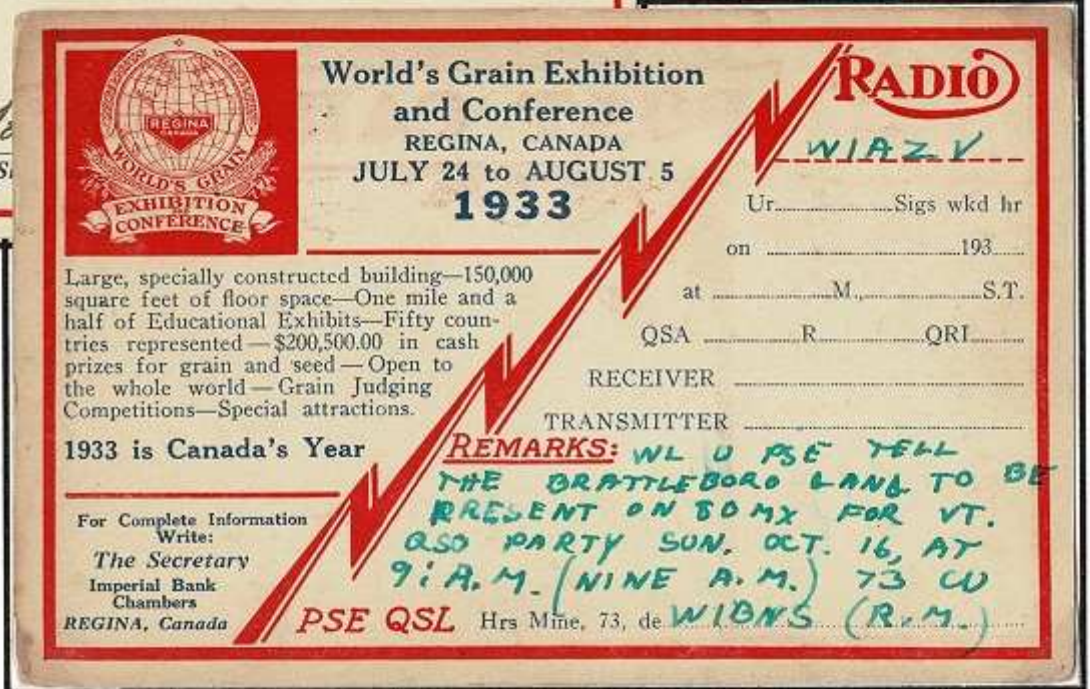 REGINA
CANADA
WORLD'S GRAIN
EXHIBITION
AND
CONFERENCE
World's Grain Exhibition
and Conference
REGINA, CANADA
JULY 24 to AUGUST 5
1933
Large, specially constructed building—150,000
square feet of floor space—One mile and a
half of Educational Exhibits—Fifty coun-
tries represented—$200,500.00 in cash
prizes for grain and seed—Open to
the whole world—Grain Judging
Competitions—Special attractions.
1933 is Canada's Year
For Complete Information
Write:
The Secretary
Imperial Bank
Chambers
REGINA, Canada
RADIO
W1AZV
Ur Sigs wkd hr
on 193
at M., S.T.
QSA R QRI
RECEIVER
TRANSMITTER
REMARKS: WL U PSE TELL
THE BRATTLEBORO GANG TO BE
PRESENT ON 80 MX FOR VT.
QSO PARTY SUN. OCT. 16, AT
9: A.M. (NINE A.M.) 73 CU
PSE QSL Hrs Mine, 73, de W1BNS (R.M.)